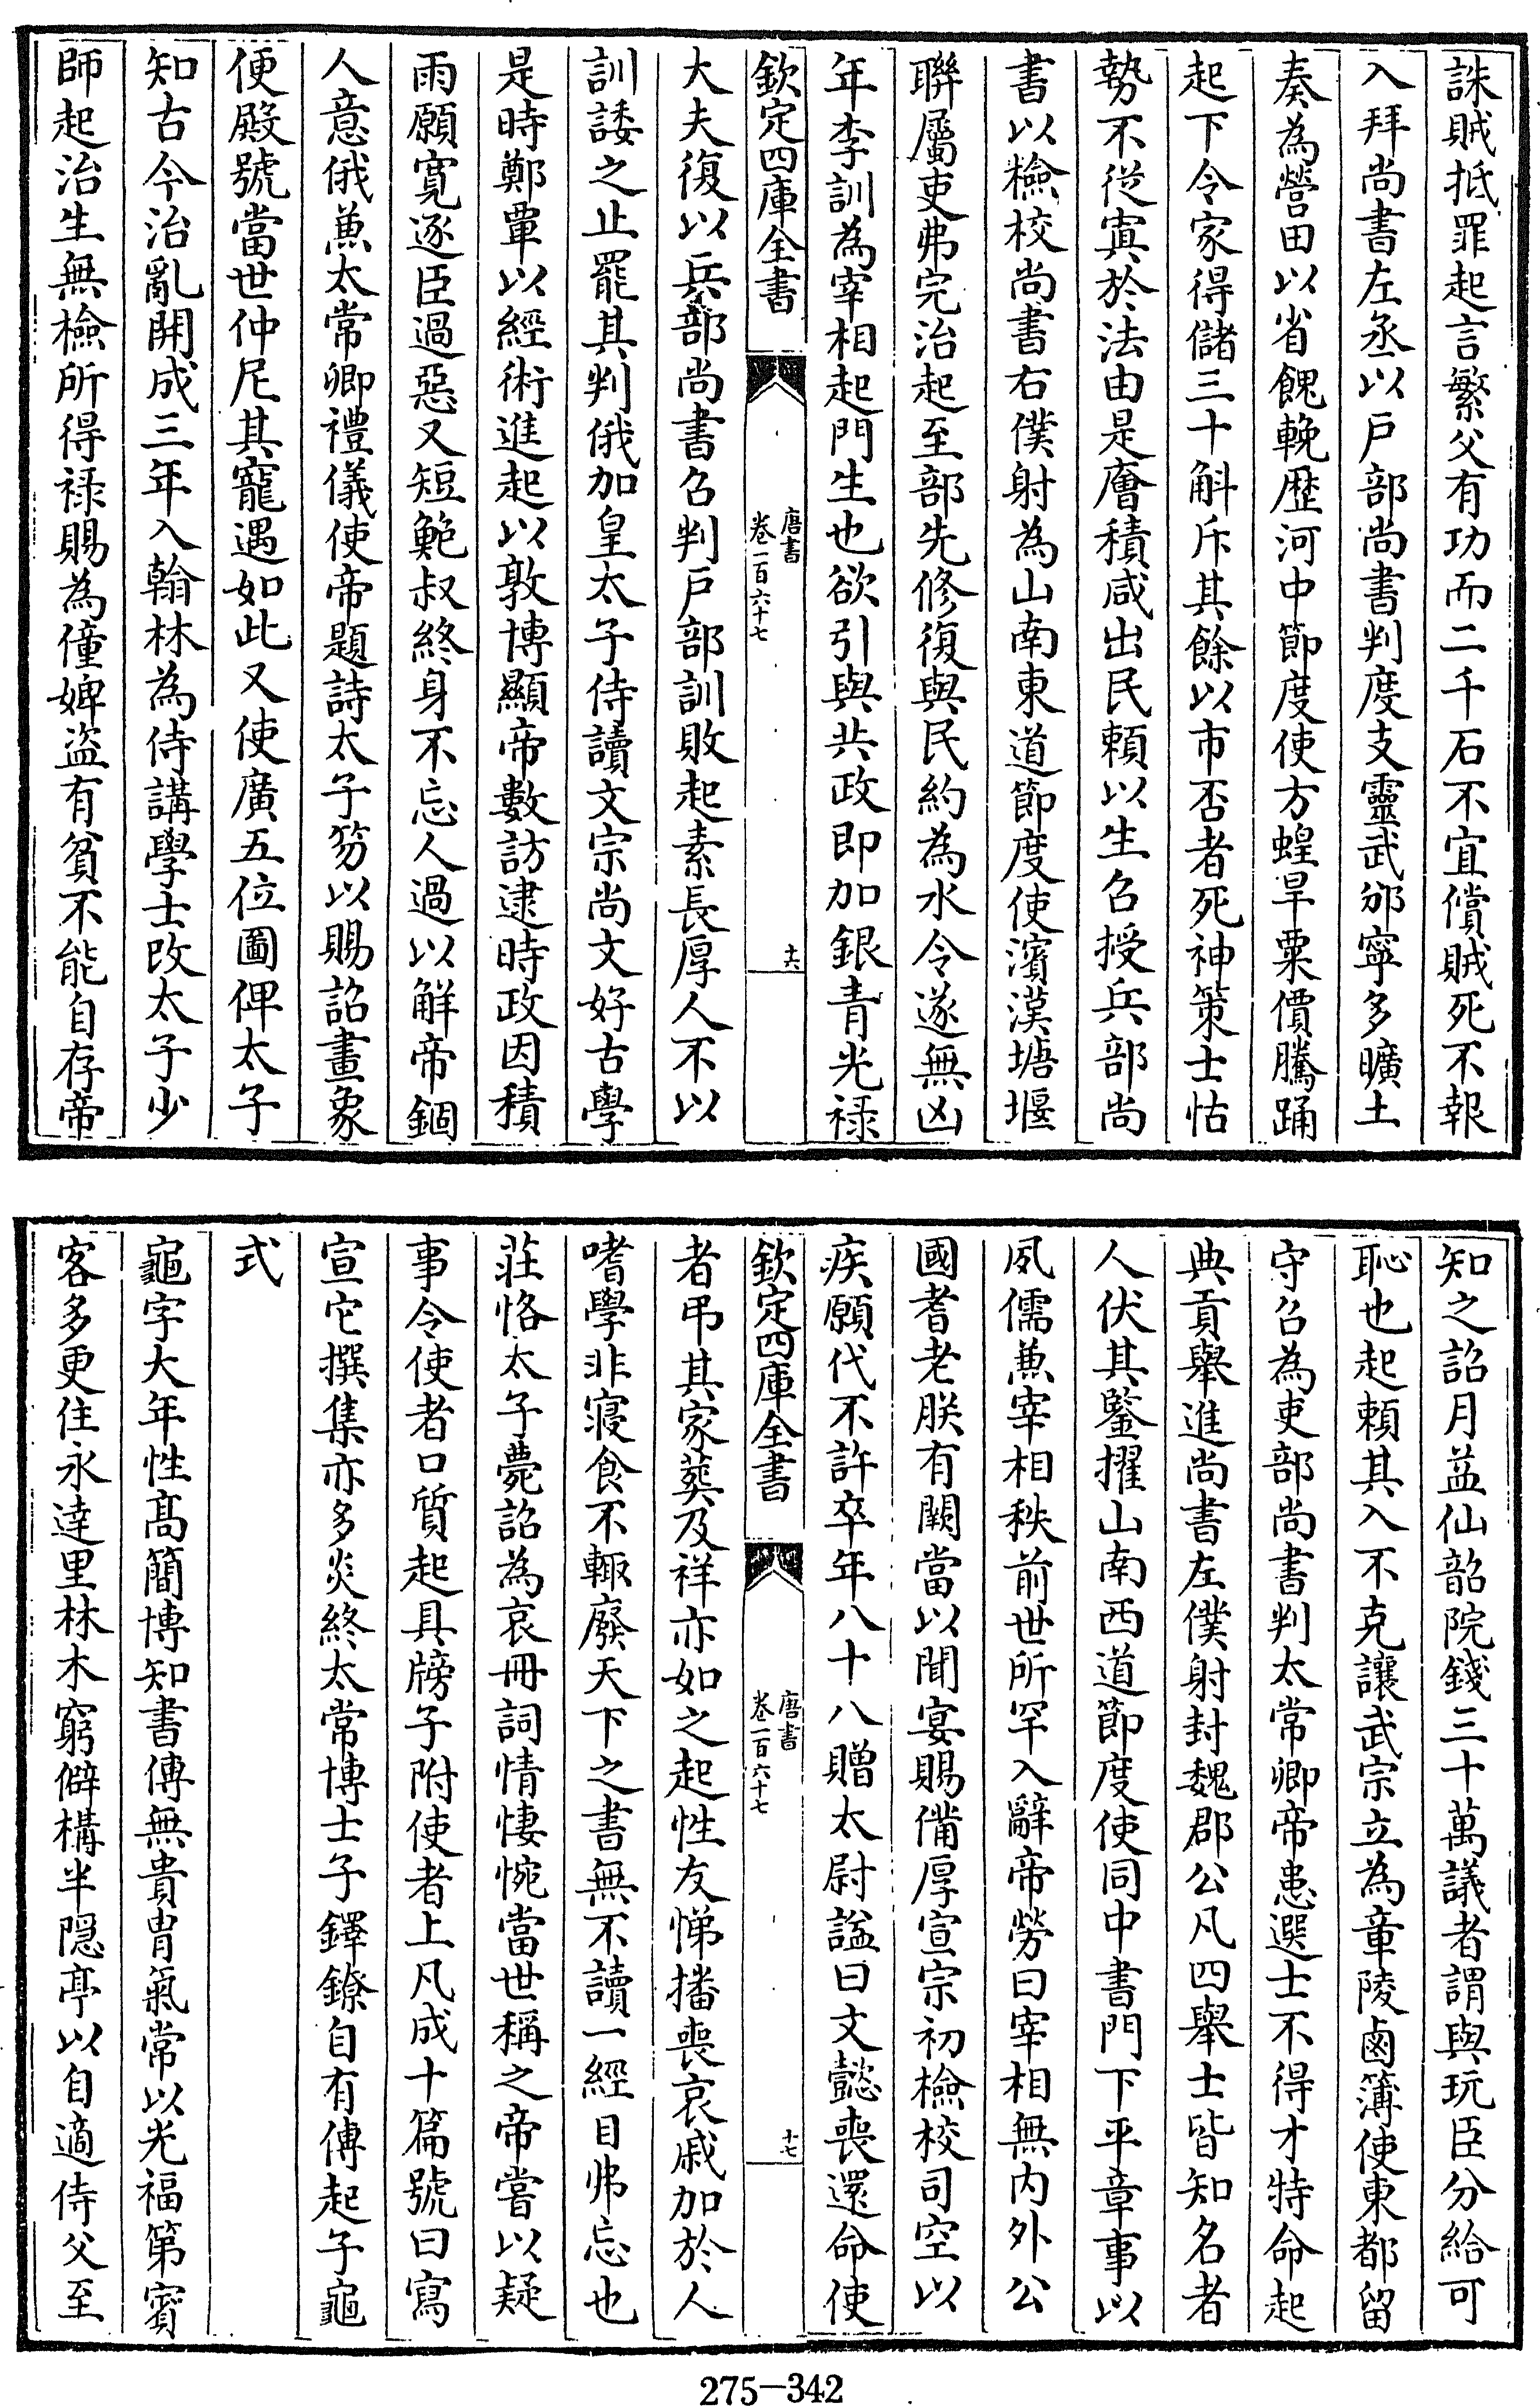 誅賊抵罪起言繁父有功而二千石不宜償賊死不報
入拜尚書左丞以戶部尚書判度支靈武邠寧多曠土
奏為營田以省餽輓歴河中節度使方蝗旱粟價騰踊
起下令家得儲三十斛斥其餘以市否者死神策士怙
勢不從寘於法由是廥積咸出民頼以生召授兵部尚
書以檢校尚書右僕射為山南東道節度使濱漢塘堰
聯屬吏弗完治起至部先修復與民約為水令遂無凶
年李訓為宰相起門生也欲引與共政即加銀青光禄
欽定四庫全書
唐書
卷一百六十七
十六
大夫復以兵部尚書召判戶部訓敗起素長厚人不以
訓諉之止罷其判俄加皇太子侍讀文宗尚文好古學
是時鄭覃以經術進起以敦博顯帝數訪逮時政因積
雨願寛逐臣過惡又短鮑叔終身不忘人過以解帝錮
人意俄兼太常卿禮儀使帝題詩太子笏以賜詔畫象
便殿號當世仲尼其寵遇如此又使廣五位圖俾太子
知古今治亂開成三年入翰林為侍講學士改太子少
師起治生無檢所得禄賜為僮婢盜有貧不能自存帝
知之詔月益仙韶院錢三十萬議者謂與玩臣分給可
恥也起頼其入不克讓武宗立為章陵鹵簿使東都留
守召為吏部尚書判太常卿帝患選士不得才特命起
典貢舉進尚書左僕射封魏郡公凡四舉士皆知名者
人伏其鑒擢山南西道節度使同中書門下平章事以
夙儒兼宰相秩前世所罕入辭帝勞曰宰相無内外公
國耆老朕有闕當以聞宴賜備厚宣宗初檢校司空以
疾願代不許卒年八十八贈太尉諡曰文懿喪還命使
欽定四庫全書
唐書
卷一百六十七
十七
者弔其家葬及祥亦如之起性友悌播喪哀戚加於人
嗜學非寢食不輙廢天下之書無不讀一經目弗忘也
莊恪太子薨詔為哀冊詞情悽惋當世稱之帝嘗以疑
事令使者口質起具牓子附使者上凡成十篇號曰寫
宣它撰集亦多炎終太常博士子鐸鐐自有傳起子龜
式
龜字大年性髙簡博知書傳無貴胄氣常以光福第賓
客多更住永達里林木窮僻構半隠亭以自適侍父至
275-342